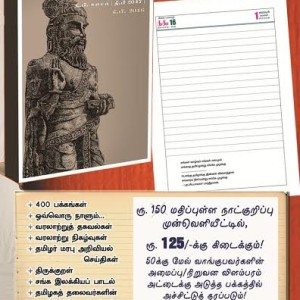 + 400 பக்கங்கள்
+ ஒவ்வொரு நாளும்...
+ வரலாற்றுத் தகவல்கள்
+ வரலாற்று நிகழ்வுகள்
+ தமிழர் மரபு அறிவியல்
செய்திகள்
+ திருக்குறள்
+ சங்க இலக்கியப் பாடல்
+ தமிழகத் தலைவர்களின்
ரூ. 150 மதிப்புள்ள நாட்குறிப்பு
முன்வெளியீட்டில்,
ரூ. 125/-க்கு கிடைக்கும்!
50க்கு மேல் வாங்குபவர்களின்
அமைப்பு/நிறுவன விளம்பரம்
அட்டைக்கு அடுத்த பக்கத்தில்
அச்சிட்டுத் தரப்படும்!